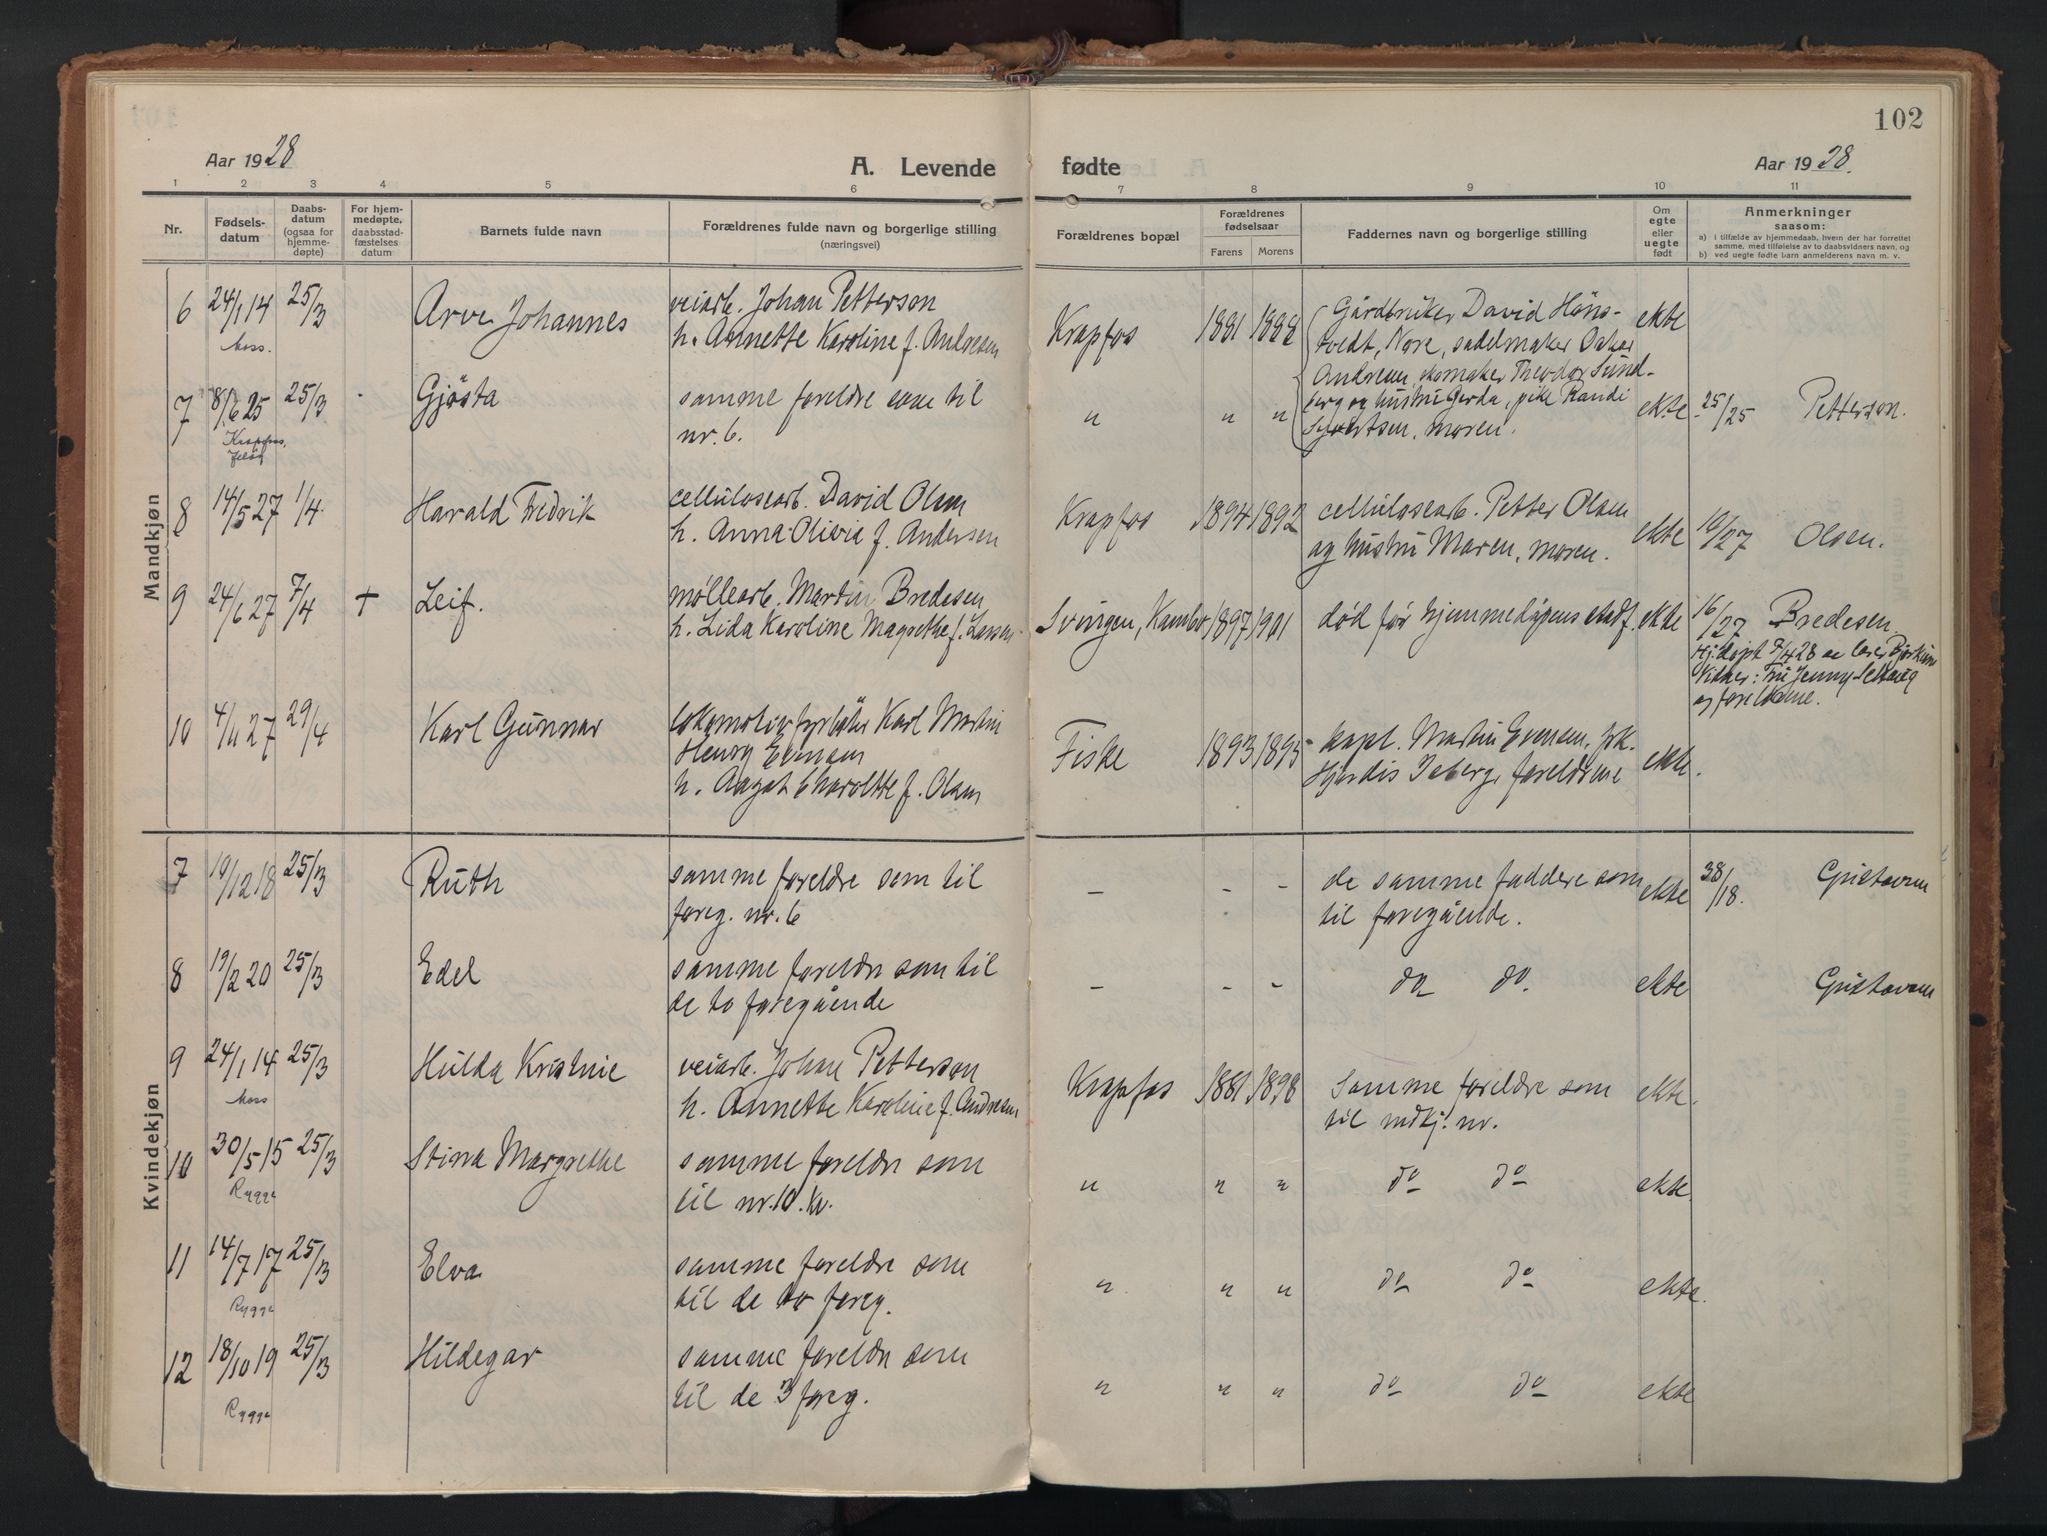 102
Aar 1928
A. Levende fødte
Aar 1928.
1 2 3 4 5 6 7 8 9 10 11
Nr.
Fødsels-
datum
Daabs-
datum
(ogsaa for
hjemme-
døpte)
For hjem-
medøpte,
daabsstad-
fæstelses
datum
Barnets fulde navn
Forældrenes fulde navn og borgerlige stilling
(næringsvei)
Forældrenes bopæl
Forældrenes
fødselsaar
Farens Morens
Faddernes navn og borgerlige stilling
Om
egte
eller
uegte
født
Anmerkninger
saasom:
a) i tilfælde av hjemmedaab, hvem der har forrettet
samme, med tilføielse av to daabsvidners navn, og
b) ved uegte fødte barn anmelderens navn m. v.
Mandkjøn
6 24/1 14 25/3 Arve Johannes veiarb. Johan Petterson
Moss. h. Annette Karoline f. Andresen
Krapfos 1881 1888 Gårdbruker David Höns-
tvedt, Nore, sadelmaker Oskar
ekte
7 8/6 25 25/3 Gjøsta samme foreldre som til
nr. 6.
Krapfos,
Jeløy
" " " Andresen, skomaker Theodor Sund-
berg og hustru Gerda, pike Randi
Syvertsen, moren.
ekte 25/25 Petterson.
8 14/5 27 1/4. Harald Fredrik cellulosearb. David Olsen
h. Anna Olivia f. Andersen
Krapfos 1894 1892 cellulosearb. Petter Olsen
og hustru Maren, moren.
ekte 10/27 Olsen.
9 24/6 27 7/4 + Leif. møllearb. Martin Bredesen
h. Lida Karoline Magrethe f. Larsen
Svingen, Kambo 1897 1901 død før hjemmedåpens stadf. ekte 16/27 Bredesen
Hj.døpt 7/4 28 av lærer
Vidner: Fru Jenny
og foreldrene.
10 4/11 27 29/4 Karl Gunnar lokomotivfyrbøter Karl Martin
Henry Evensen
h. Aagot Charoltte f. Olsen
Fiske 1893 1895 kapt. Martin Evensen, frk.
Hjørdis Isberg, foreldrene
ekte.
Kvindekjøn
7 19/12 18 25/3 Ruth samme foreldre som til
foreg. nr. 6
- - - de samme faddere som
til foregående.
ekte 38/18. Gustavsen
8 19/2 20 25/3 Edel samme foreldre som til
de to foregående
- - - do do. ekte Gustavsen
9 24/1 14 25/3 Hulda Kristine veiarb. Johan Petterson
Moss h. Annette Karoline f. Andresen
Krapfos 1881 1898 Samme foreldre som
til mdkj. nr.
ekte.
10 30/5 15 25/3 Stina Margrethe samme foreldre som
Rygge til nr. 10. kv.
" " " do do ekte
11 14/7 17 25/3 Elva samme foreldre som
Rygge til de to foreg.
" " " do do ekte.
12 18/10 19 25/3 Hildegar samme foreldre som
Rygge til de 3 foreg.
" " " do do ekte